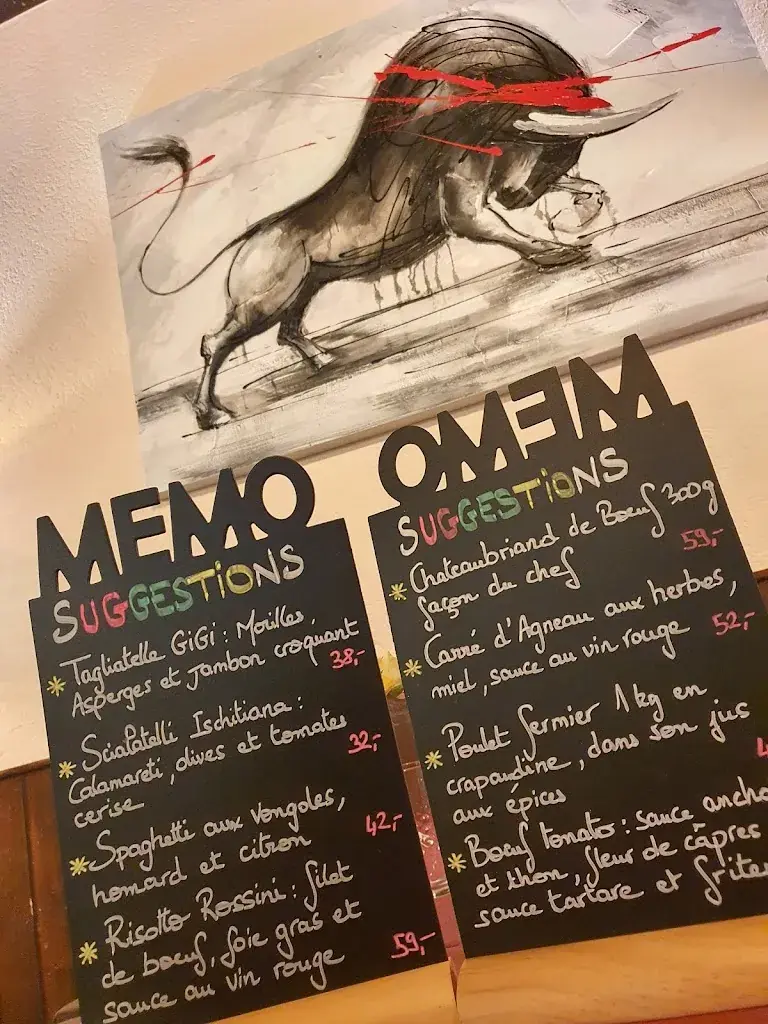 MEMO
SUGGESTIONS
* Tagliatelle GiGi : Morilles,
Asperges et Jambon croquant
38,-
* Scialatelli Ischitiana :
Calamareti, olives et tomates
cerise
32,-
* Spaghetti aux vongoles,
homard et citron
42,-
* Risotto Rossini : filet
de bœuf, foie gras et
sauce au vin rouge
59,-
MEMO
SUGGESTIONS
* Chateaubriand de Bœuf 300g
façon du chef
59,-
* Carré d'Agneau aux herbes,
miel, sauce au vin rouge
52,-
* Poulet fermier 1kg en
crapaudine, dans son jus
aux épices
* Bœuf tonato : sauce
et thon, fleur de câpres
sauce tartare et